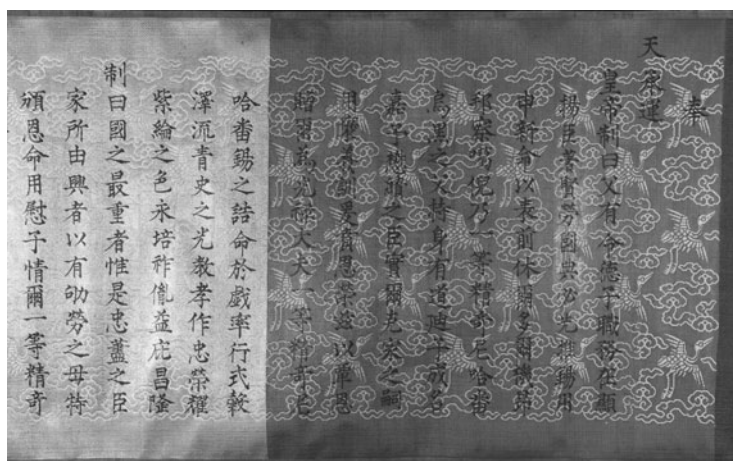 奉
天承運
皇帝制曰父有令德子職務在顯
揚臣著賢勞國典必先推錫用
申新命以表前休爾多爾機
邦察倪乃一等精奇尼哈番
烏黑之父持身有道迪子成名
嘉予懋績之臣實爾克家之嗣
用義訓爰賁恩榮茲以覃恩
贈爾為光祿大夫一等精奇尼
哈番錫之誥命於戲率行式穀
澤流青史之光教孝作忠榮耀
紫綸之色永培祚胤益庇昌隆
制曰國之最重者惟是忠藎之臣
家所由興者以有劬勞之母特
頒恩命用慰子情爾一等精奇